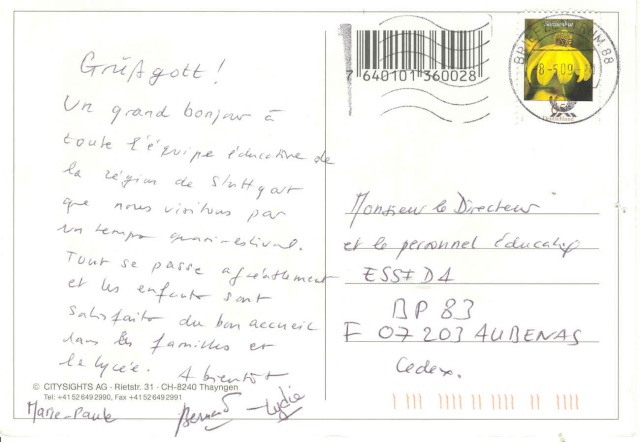 Grüßgott !
Un grand bonjour à
toute l'équipe éducative de
la région de Stuttgart
que nous visitons par
un temps quasi-estival.
Tout se passe agréablement
et les enfants sont
satisfaits du bon accueil
dans les familles et
le lycée. A bientôt
© CITYSIGHTS AG - Rietstr. 31 - CH-8240 Thayngen
Tel: +41 52 649 2990, Fax +41 52 649 2991
Marie-Paule Bernard Lydie
7 640101 360028
88
8-5.09
Monsieur le Directeur
et le personnel éducatif
BP 83
F 07203 AUBENAS
Cedex.